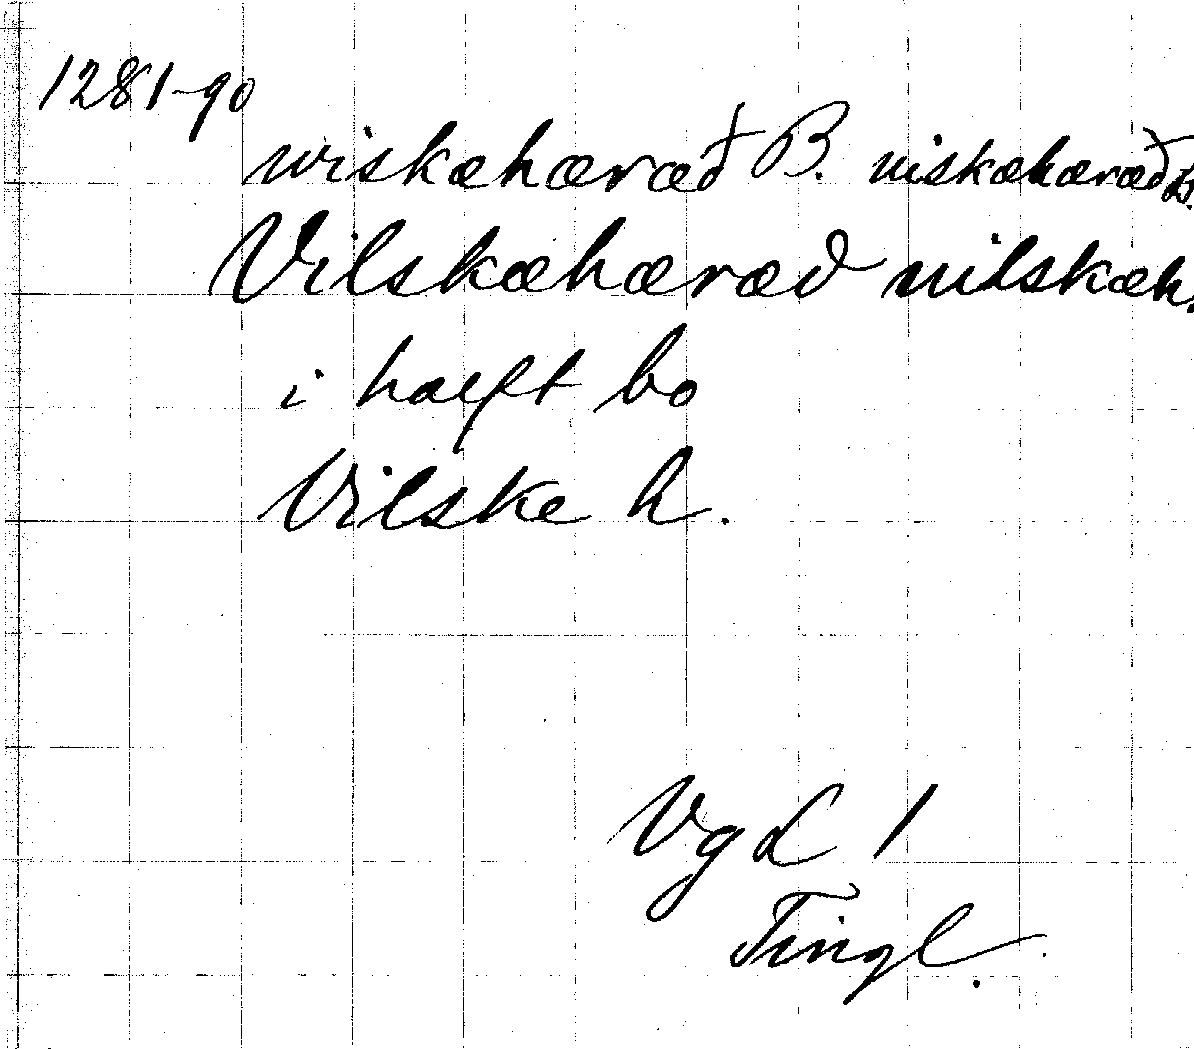 1281-90
wiskæhæræđ B. niskæhæræđ B.
Vilskæhæræð uilskæh.
i hælft bo
Vilske h.
VgL 1
Tingl.